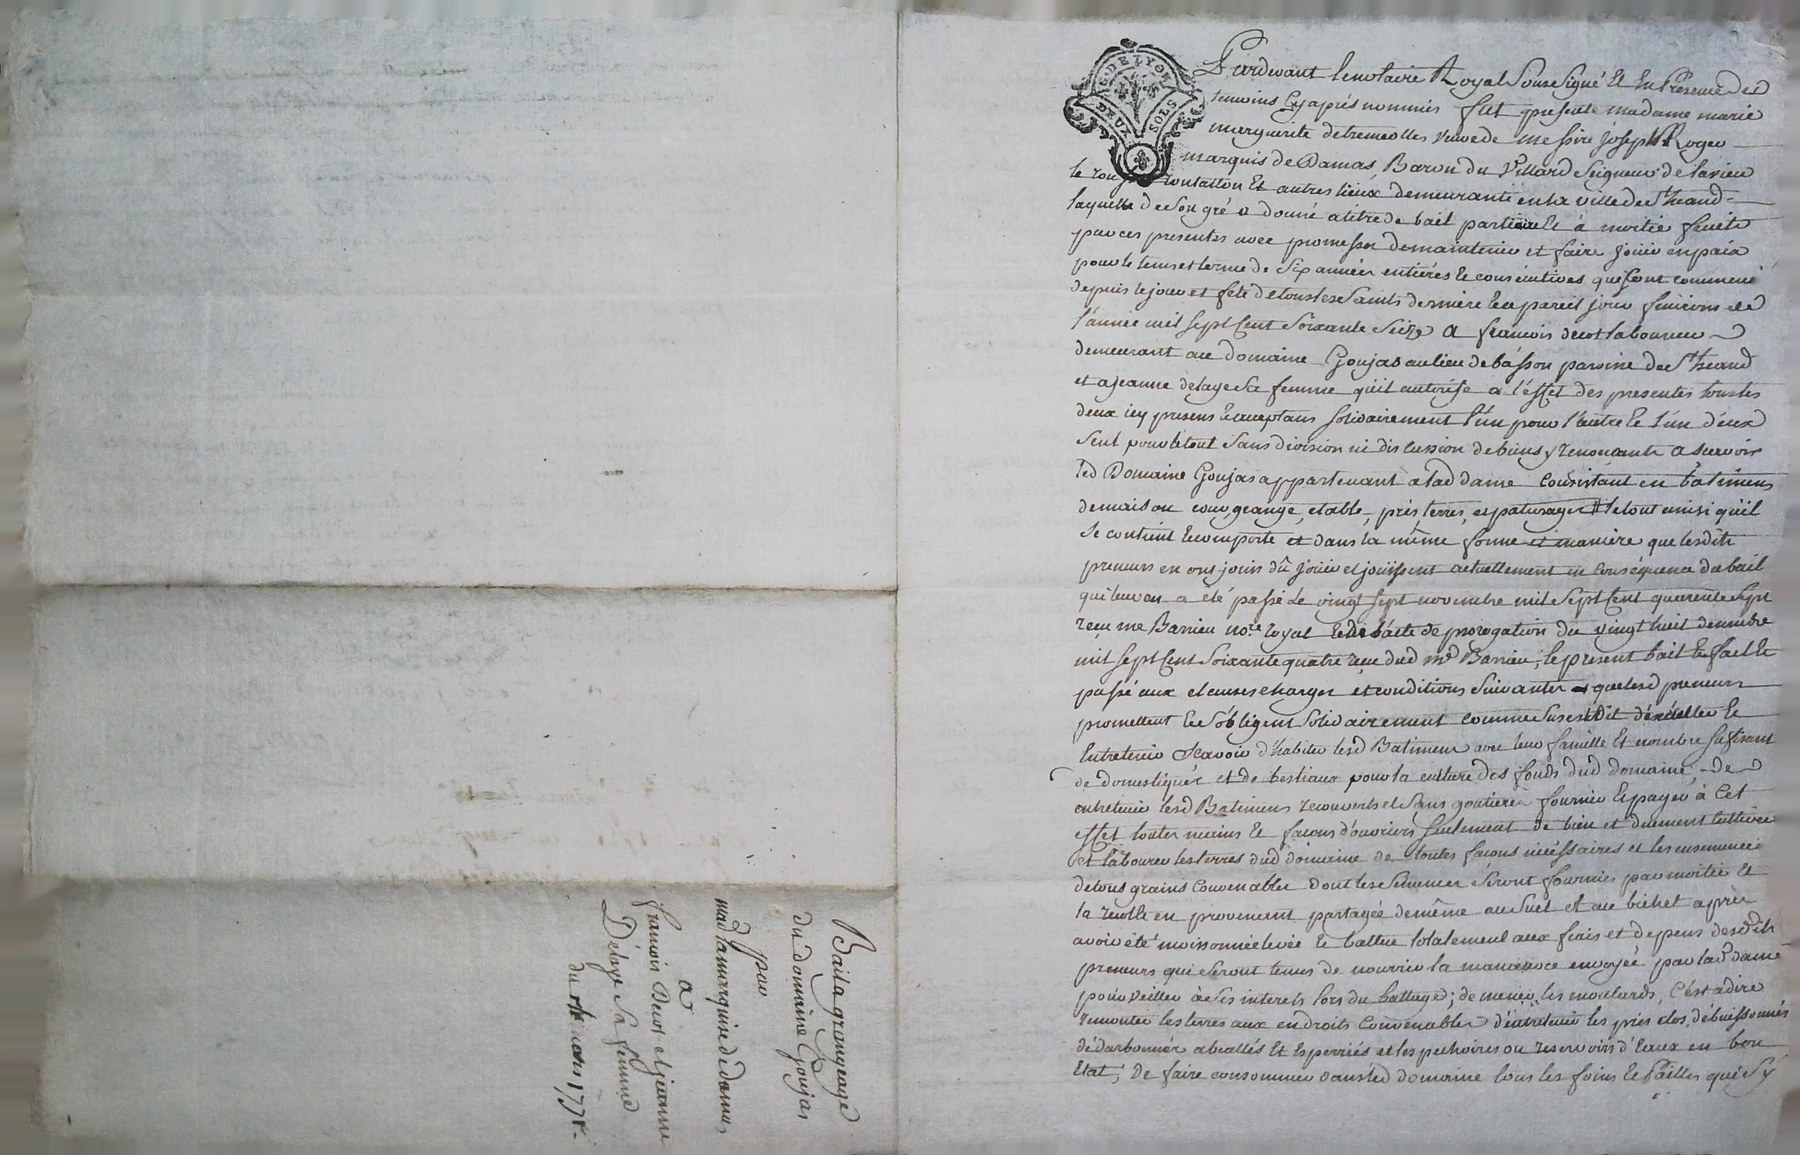 Bail a grangeage
du domaine Goujas
par
mad^e la marquise de damas
a
francois Decot et jeanne
Delaye Sa femme
du mars 1771.
G. DE LYON
DEUX SOLS
Pardevant le notaire Royal Sousigné Et En Presence des
temoins Cy aprés nommés fut presente madame marie
marguerite detremeolles veuve de messire joseph Roger
marquis de Damas, Baron du Villard Seigneur de lavieu
le rou montatton Et autres lieux demeurante en la ville de S^t heand
laquelle de Son gré a donné a titre de bail partiaire a moitié fruits
par ces presentes avec promesses de maintenir et faire jouir en paix
pour le tems et terme de Six années entiéres et consécutives qui sont commencé
depuis le jour et fête de tous les Saints derniere et a pareil jour finiront de
l'année mil Sept Cent Soixante Seize A francois decot laboureur
demeurant au domaine Goujas au lieu de básson paroisse de S^t heand
et a jeanne delaye Sa femme qu'il autorise a l'effet des presentes tous les
deux icy presens et acceptans solidairement l'un pour l'autre et l'un d'eux
Seul pour le tout Sans division ni discussion de biens y renoncants a sçavoir
led Domaine Goujas appartenant a lad dame consistant en bâtimens
de maison cour grange, etable, prés terres, et paturages le tout ainsi qu'il
Se contient et comporte et dans la même forme et maniere que lesdits
preneurs en ont joui dû jouir et jouissent actuellement en conséquence du bail
qui leur en a été passé le vingt sept novembre mil Sept Cent quarente Sept
reçu me Barrieu no^re royal et de l'acte de prorogation du vingt huit decembre
mil sept Cent Soixante quatre reçu dud m^e Barrieu; le present bail Est fait et
passé aux clauses charges et conditions Suivantes que lesd preneurs
promettent et S'obligent Solidairement comme Sus est dit d'exécuter et
Entretenir Scavoir d'habiter lesd Batimens avec leur famille Et nombre sufisant
de domestiques et de bestiaux pour la culture des fonds dud domaine, de
entretenir lesd Batimens recouverts et Sans goutieres fournir et payer à Cet
effet toutes mains et facons d'ouvriers seulement de bien et duement cultiver
et labourer les terres dud domaine de toutes facons nécessaires et les ensemencer
de tous grains Convenables dont les Semences Seront fournies par moitié et
la recolte en provenant partagée de même au Suel et au bichet après
avoir été moissonnée levée et battue totalement aux frais et depens desdits
preneurs qui Seront tenus de nourrir la manœuvre envoyée par lad dame
pour veiller à Ses interets lors du battage; de mener les moutards, C'est a dire
remonter les terres aux endroits Convenables d'entretenir les prés clos débuissonnés
dédarbonnés abeallés Et Esperriés et les pechoires ou reservoirs d'Eaux en bon
Etat; de faire consommer dans led domaine tous les foins et Pailles qui S'y